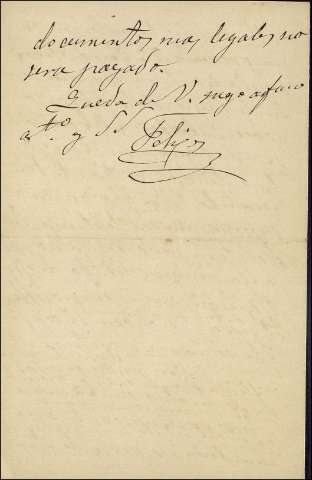 documentos mas legales no
sera pagado.
Queda de V. suyo afmo
atto y S.
Felipe